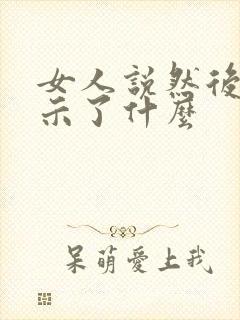 女人説然後
示了什麼
呆萌愛上我